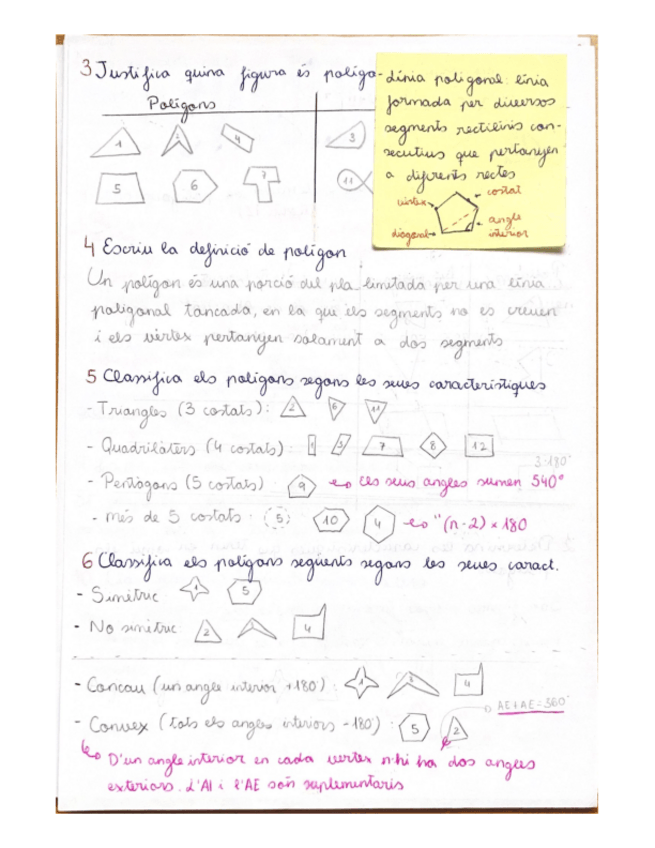 3 Justifica quina figura és polígo-
Polígons
1 2 4 3
5 6 7 11
-Línia poligonal: línia
formada per diversos
segments rectilinis con-
secutius que pertanyen
a diferents rectes
vèrtex
costat
diagonal
angle
interior
4 Escriu la definició de polígon
Un polígon és una porció del pla limitada per una línia
poligonal tancada, en la que els segments no es creuen
i els vèrtex pertanyen solament a dos segments
5 Classifica els polígons segons les seues característiques
- Triangles (3 costats): 2 6 11
- Quadrilàters (4 costats): 1 3 7 8 12
3·180°
- Pentàgons (5 costats): 9 les seus angles sumen 540°
- més de 5 costats: 5 10 4 " (n-2) × 180
6 Classifica els polígons següents segons les seues caract.
- Simètric: 1 5
- No simètric: 2 4
- Còncau (un angle interior +180°): 1 4
AE+AE=360°
- Convex (tots els angles interiors -180°): 5 2
D'un angle interior en cada vèrtex n'hi ha dos angles
exteriors. L'AI i l'AE són suplementaris